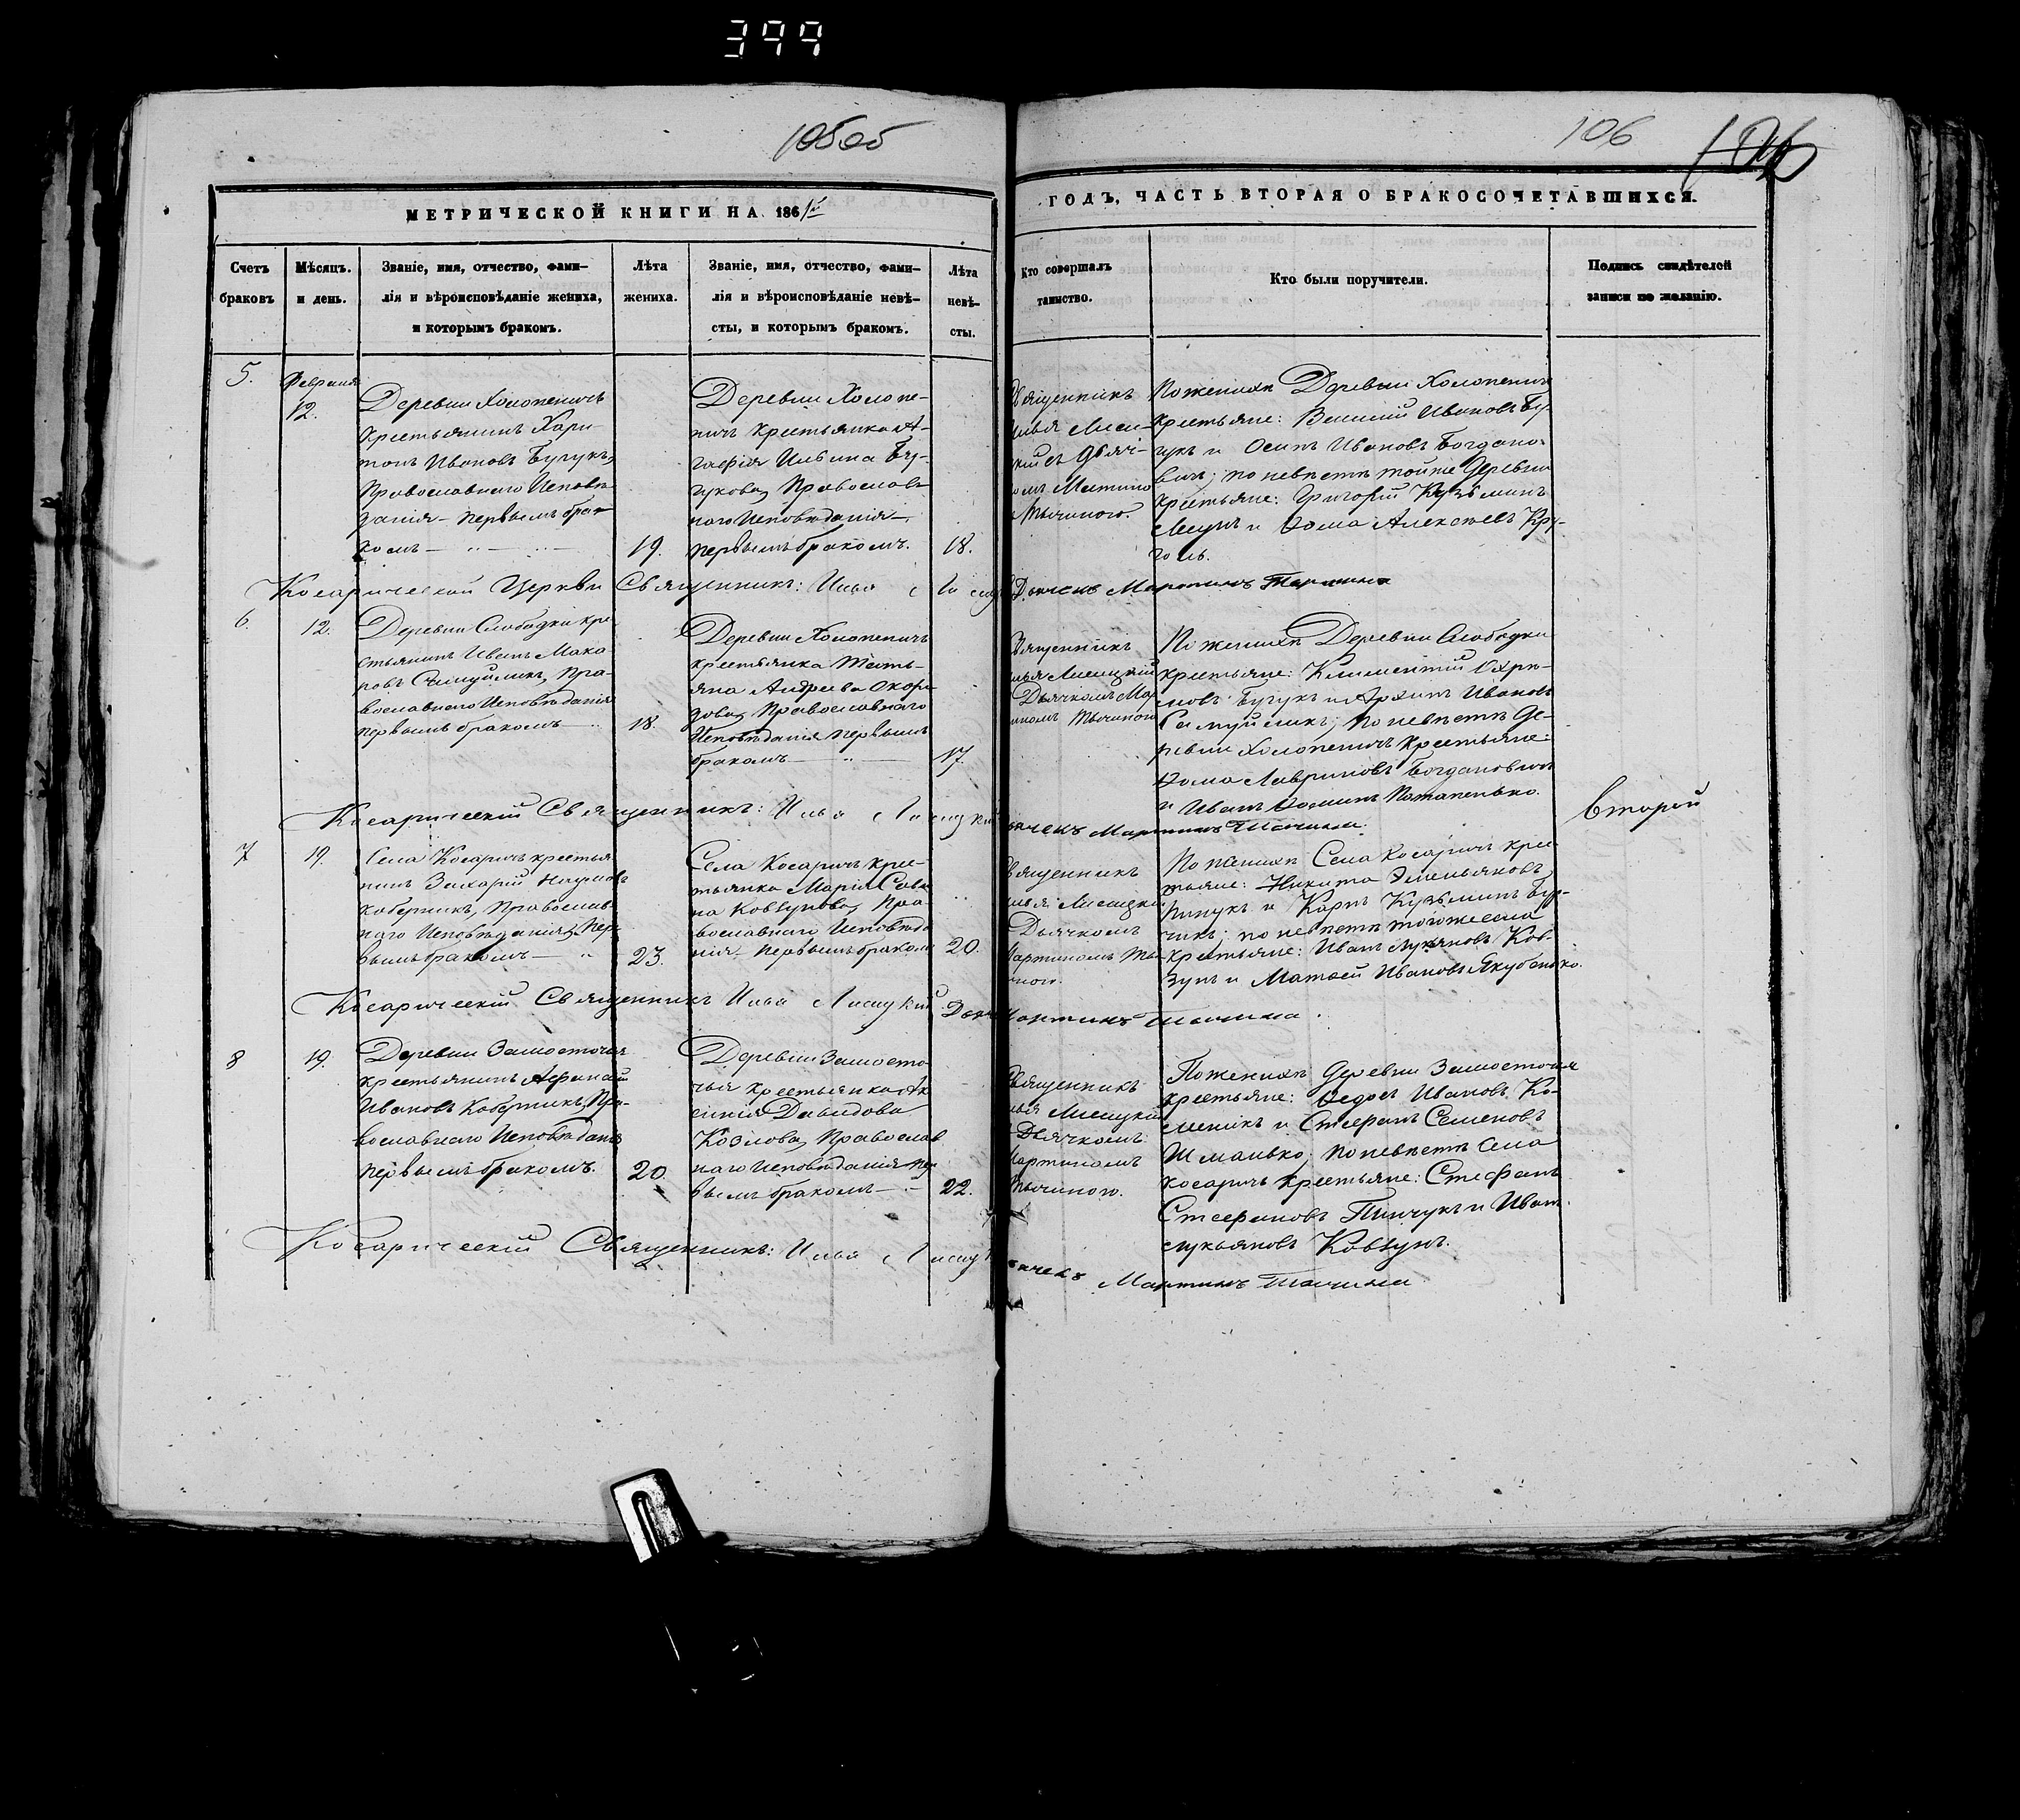 399
105об
106
МЕТРИЧЕСКОЙ КНИГИ НА 1861й
ГОДЪ, ЧАСТЬ ВТОРАЯ О БРАКОСОЧЕТАВШИХСЯ.
Счетъ браковъ
Мѣсяцъ. и день.
Званіе, имя, отчество, фами-
лія и вѣроисповѣданіе жениха,
и которымъ бракомъ.
Лѣта
жениха.
Званіе, имя, отчество, фами-
лія и вѣроисповѣданіе невѣ-
сты, и которымъ бракомъ.
Лѣта
невѣ-
сты.
Кто совершалъ
таинство.
Кто были поручители.
Подпись свидѣтелей
записи по желанію.
5.
Февраля
12.
Деревни Холопеничъ
крестьянинъ Хари-
тонъ Ивановъ Бугукъ,
Православнаго Исповѣ-
данія – первымъ бра-
комъ –
19.
Деревни Холопе-
ничъ крестьянка А-
гафія Ильина Бу-
гукова, Православ-
наго Исповѣданія –
первымъ бракомъ.
18.
Священникъ
Илья Лиси-
цкій съ Дьяч-
комъ Мартино
Тычиною.
По женихѣ Деревни Холопеничъ
крестьяне: Василій Ивановъ Бу-
гукъ и Осипъ Ивановъ Богдано-
вичъ; по невѣстѣ тойже Деревни
крестьяне: Григорій Кузьминъ
и Ѳома Алексѣевъ Кру-
голь.
Косаричской Церкви Священникъ: Илья Лисицкій
Дьячекъ Мартинъ Тычина
6.
12.
Деревни Слободки кре-
стьянинъ Иванъ Мака-
ровъ Самуйликъ, Пра-
вославнаго Исповѣданія
первымъ бракомъ –
18.
Деревни Холопеничъ
крестьянка Тать-
яна Андреева
Православнаго
Исповѣданія первымъ
бракомъ –
17.
Священникъ
Илья Лисицкій
Дьячкомъ Мар
тиномъ Тычиною
По женихѣ Деревни Слободки
крестьяне: Климентій
Бугукъ и Архипъ Ивановъ
Самуйликъ; по невѣстѣ Де-
ревни Холопеничъ крестьяне:
Ѳома Лавриновъ Богдановичъ
и Иванъ Ѳоминъ Потапенько.
Косаричскій Священникъ: Илья Лисицкій
Дьячекъ Мартинъ Тычина.
второй
7
19.
Села Косаричъ крестья-
нинъ Захарій Наумовъ
Коберникъ, Православ-
наго Исповѣданія, Пер-
вымъ бракомъ –
23.
Села Косаричъ кре-
стьянка Марія Савина
Ковзунова, Пра-
вославнаго Исповѣда-
нія – первымъ бракомъ
20.
Священникъ
Илья Лисицкій
Дьячкомъ
Мартиномъ Ты-
чиною.
По женихѣ Села Косаричъ крес-
тьяне: Никита Емельяновъ
Пинчукъ и Карпъ Кузьминъ Бур-
чикъ; по невѣстѣ тогоже села
крестьяне: Иванъ Лукьяновъ Ков-
зунъ и Матвей Ивановъ Якубенько.
Косаричскій Священникъ Илья Лисицкій. Дьячекъ
Мартинъ Тычина.
8
19.
Деревни Замосточья
крестьянинъ Афанасій
Ивановъ Коберникъ, Пра-
вославнаго Исповѣданія
первымъ бракомъ.
20.
Деревни Замосто-
чья крестьянка Ак-
синія Давидова
Козлова, Православ
наго Исповѣданія пер-
вымъ бракомъ –
22.
Священникъ
Илья Лисицкій
Дьячкомъ
Мартиномъ
Тычиною.
По женихѣ Деревни Замосточья
крестьяне: Ѳедоръ Ивановъ Ко-
и Стефанъ Семеновъ
Шманько; по невѣстѣ Села
Косаричъ крестьяне: Стефанъ
Стефановъ Пинчукъ и Иванъ
Лукьяновъ Ковзунъ.
Косаричскій Священникъ: Илья Лисицкій
Дьячекъ Мартинъ Тычина